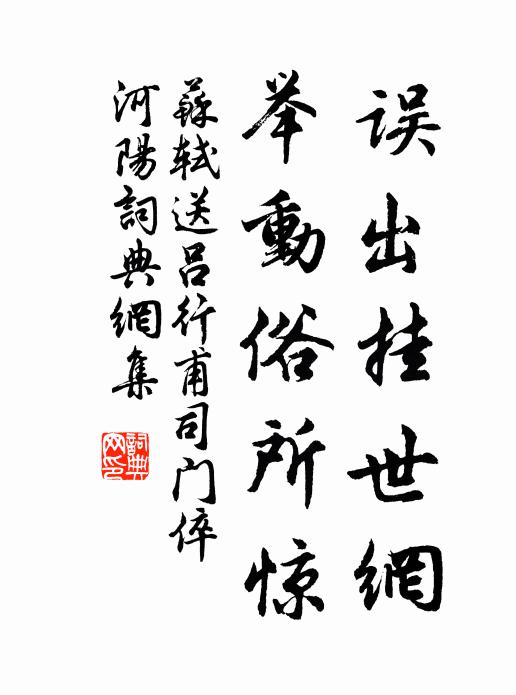 误出挂世網
举動俗所惊
蘇軾送呂行甫司门倅
河陽詞典網集
詞典網印